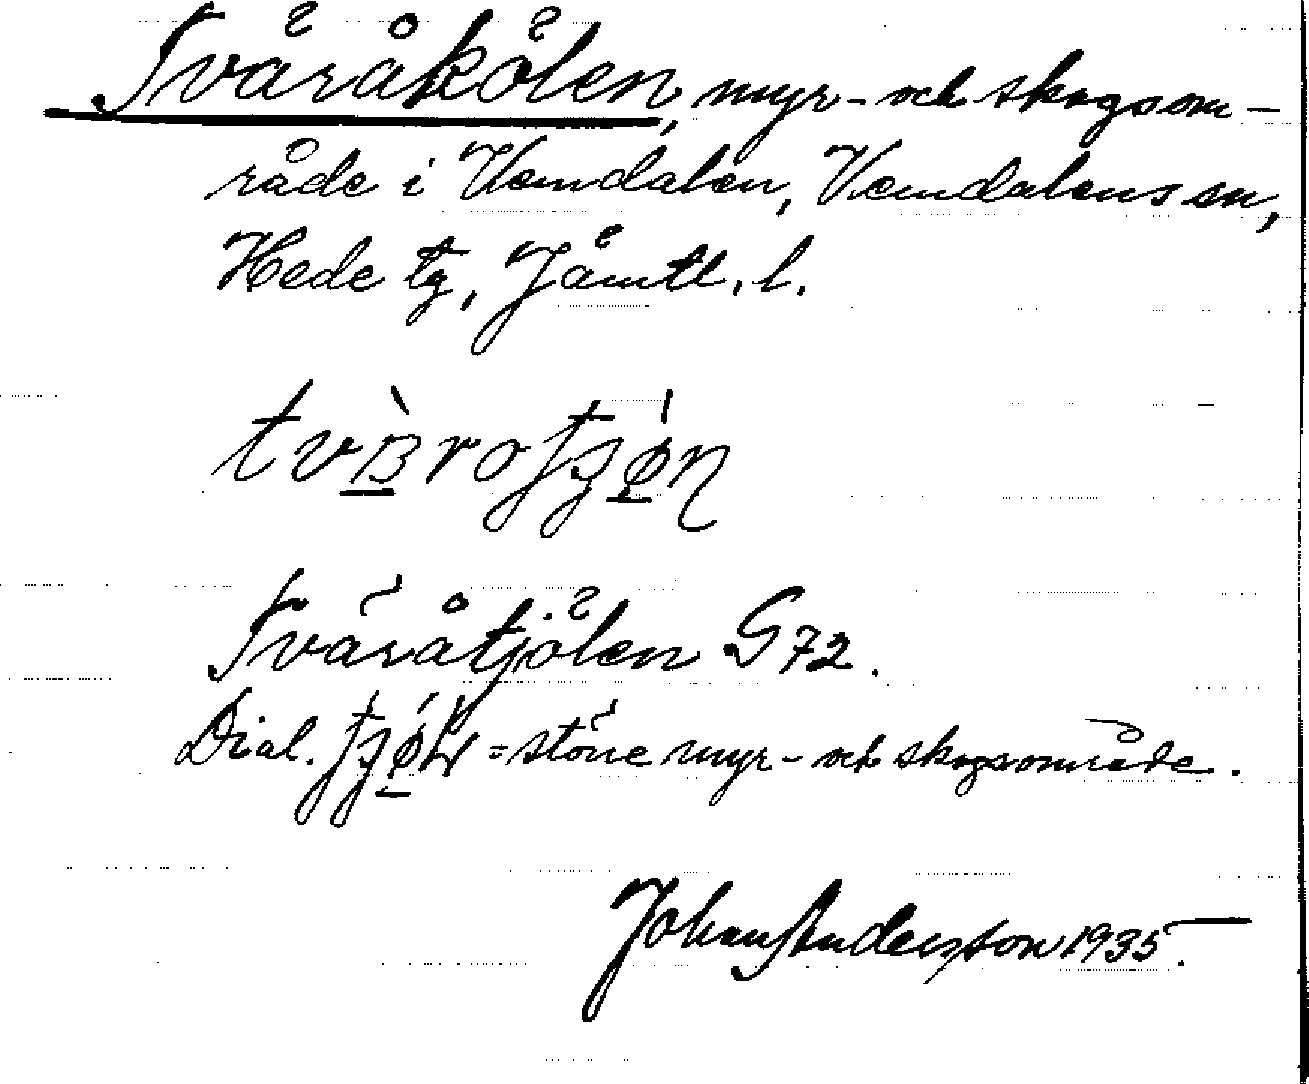 Tväråkölen, myr- och skogsom-
råde i Vemdalen, Vemdalens sn,
Hede tg, Jämtl. l.
Tväråtjölen G72.
Dial. = större myr- och skogsområde.
Johan Andersson 1935.